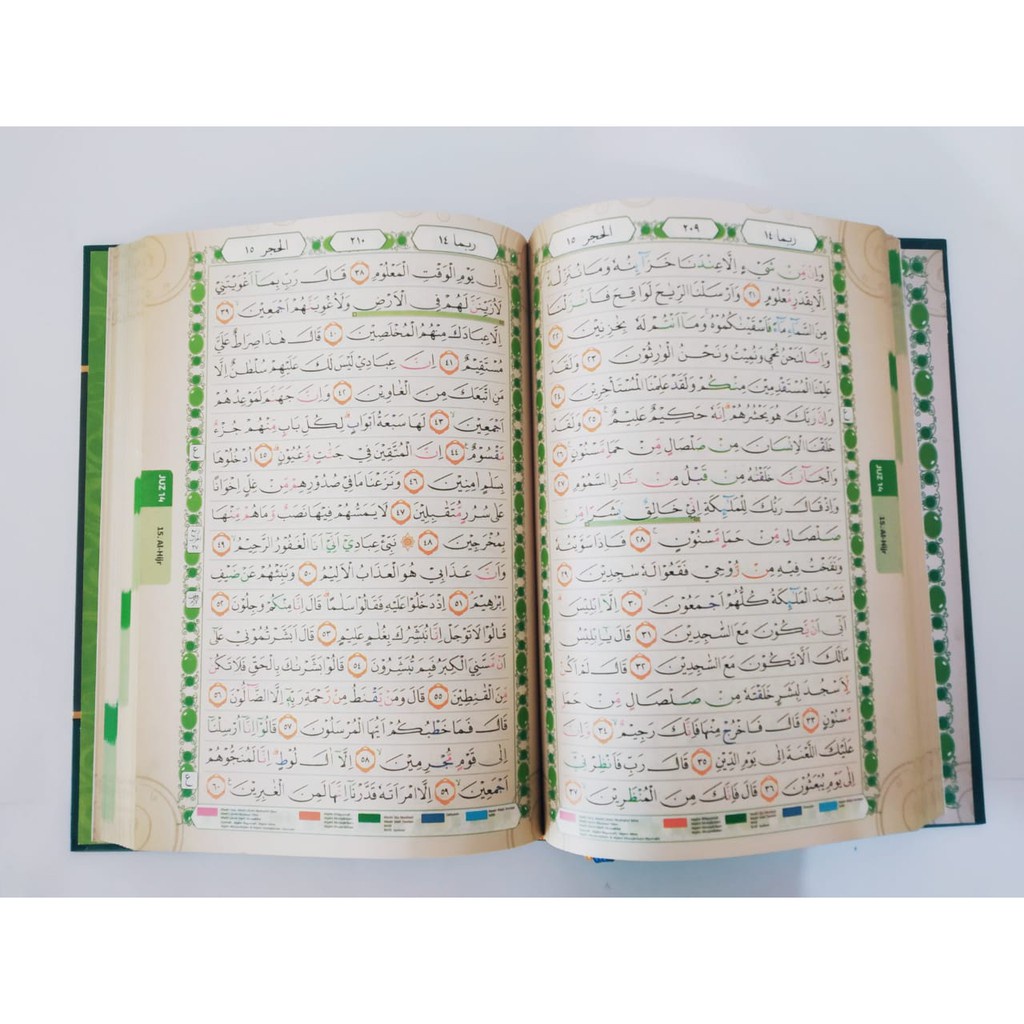 ربما ١٤
٢٠٩
الحجر ١٥
وَاِنْ مِّنْ شَيْءٍ اِلَّا عِنْدَنَا خَزَاۤىِٕنُهٗ وَمَا نُنَزِّلُهٗٓ
اِلَّا بِقَدَرٍ مَّعْلُوْمٍ ٢١ وَاَرْسَلْنَا الرِّيٰحَ لَوَاقِحَ فَاَنْزَلْنَا
مِنَ السَّمَاۤءِ مَاۤءً فَاَسْقَيْنٰكُمُوْهُ وَمَآ اَنْتُمْ لَهٗ بِخٰزِنِيْنَ ٢٢
وَاِنَّا لَنَحْنُ نُحْيٖ وَنُمِيْتُ وَنَحْنُ الْوٰرِثُوْنَ ٢٣ وَلَقَدْ
عَلِمْنَا الْمُسْتَقْدِمِيْنَ مِنْكُمْ وَلَقَدْ عَلِمْنَا الْمُسْتَأْخِرِيْنَ ٢٤
وَاِنَّ رَبَّكَ هُوَ يَحْشُرُهُمْ اِنَّهٗ حَكِيْمٌ عَلِيْمٌ ٢٥ وَلَقَدْ
خَلَقْنَا الْاِنْسَانَ مِنْ صَلْصَالٍ مِّنْ حَمَاٍ مَّسْنُوْنٍ ٢٦
وَالْجَاۤنَّ خَلَقْنٰهُ مِنْ قَبْلُ مِنْ نَّارِ السَّمُوْمِ ٢٧
وَاِذْ قَالَ رَبُّكَ لِلْمَلٰۤىِٕكَةِ اِنِّيْ خَالِقٌ بَشَرًا مِّنْ
صَلْصَالٍ مِّنْ حَمَاٍ مَّسْنُوْنٍ ٢٨ فَاِذَا سَوَّيْتُهٗ
وَنَفَخْتُ فِيْهِ مِنْ رُّوْحِيْ فَقَعُوْا لَهٗ سٰجِدِيْنَ ٢٩
فَسَجَدَ الْمَلٰۤىِٕكَةُ كُلُّهُمْ اَجْمَعُوْنَ ٣٠ اِلَّآ اِبْلِيْسَ
اَبٰىٓ اَنْ يَّكُوْنَ مَعَ السّٰجِدِيْنَ ٣١ قَالَ يٰٓاِبْلِيْسُ
مَا لَكَ اَلَّا تَكُوْنَ مَعَ السّٰجِدِيْنَ ٣٢ قَالَ لَمْ اَكُنْ
لِّاَسْجُدَ لِبَشَرٍ خَلَقْتَهٗ مِنْ صَلْصَالٍ مِّنْ حَمَاٍ
مَّسْنُوْنٍ ٣٣ قَالَ فَاخْرُجْ مِنْهَا فَاِنَّكَ رَجِيْمٌ ٣٤ وَّاِنَّ
عَلَيْكَ اللَّعْنَةَ اِلٰى يَوْمِ الدِّيْنِ ٣٥ قَالَ رَبِّ فَاَنْظِرْنِيْٓ
اِلٰى يَوْمِ يُبْعَثُوْنَ ٣٦ قَالَ فَاِنَّكَ مِنَ الْمُنْظَرِيْنَ ٣٧
JUZ 14
15. Al-Hijr
ربما ١٤
٢١٠
الحجر ١٥
اِلٰى يَوْمِ الْوَقْتِ الْمَعْلُوْمِ ٣٨ قَالَ رَبِّ بِمَآ اَغْوَيْتَنِيْ
لَاُزَيِّنَنَّ لَهُمْ فِى الْاَرْضِ وَلَاُغْوِيَنَّهُمْ اَجْمَعِيْنَ ٣٩
اِلَّا عِبَادَكَ مِنْهُمُ الْمُخْلَصِيْنَ ٤٠ قَالَ هٰذَا صِرَاطٌ عَلَيَّ
مُسْتَقِيْمٌ ٤١ اِنَّ عِبَادِيْ لَيْسَ لَكَ عَلَيْهِمْ سُلْطٰنٌ اِلَّا
مَنِ اتَّبَعَكَ مِنَ الْغَاوِيْنَ ٤٢ وَاِنَّ جَهَنَّمَ لَمَوْعِدُهُمْ
اَجْمَعِيْنَ ٤٣ لَهَا سَبْعَةُ اَبْوَابٍ لِكُلِّ بَابٍ مِّنْهُمْ جُزْءٌ
مَّقْسُوْمٌ ٤٤ اِنَّ الْمُتَّقِيْنَ فِيْ جَنّٰتٍ وَّعُيُوْنٍ ٤٥ اُدْخُلُوْهَا
بِسَلٰمٍ اٰمِنِيْنَ ٤٦ وَنَزَعْنَا مَا فِيْ صُدُوْرِهِمْ مِّنْ غِلٍّ اِخْوَانًا
عَلٰى سُرُرٍ مُّتَقٰبِلِيْنَ ٤٧ لَا يَمَسُّهُمْ فِيْهَا نَصَبٌ وَّمَا هُمْ مِّنْهَا
بِمُخْرَجِيْنَ ٤٨ نَبِّئْ عِبَادِيْٓ اَنِّيْٓ اَنَا الْغَفُوْرُ الرَّحِيْمُ ٤٩
وَاَنَّ عَذَابِيْ هُوَ الْعَذَابُ الْاَلِيْمُ ٥٠ وَنَبِّئْهُمْ عَنْ ضَيْفِ
اِبْرٰهِيْمَ ٥١ اِذْ دَخَلُوْا عَلَيْهِ فَقَالُوْا سَلٰمًا قَالَ اِنَّا مِنْكُمْ وَجِلُوْنَ ٥٢
قَالُوْا لَا تَوْجَلْ اِنَّا نُبَشِّرُكَ بِغُلٰمٍ عَلِيْمٍ ٥٣ قَالَ اَبَشَّرْتُمُوْنِيْ عَلٰٓى
اَنْ مَّسَّنِيَ الْكِبَرُ فَبِمَ تُبَشِّرُوْنَ ٥٤ قَالُوْا بَشَّرْنٰكَ بِالْحَقِّ فَلَا تَكُنْ
مِّنَ الْقٰنِطِيْنَ ٥٥ قَالَ وَمَنْ يَّقْنَطُ مِنْ رَّحْمَةِ رَبِّهٖٓ اِلَّا الضَّاۤلُّوْنَ ٥٦
قَالَ فَمَا خَطْبُكُمْ اَيُّهَا الْمُرْسَلُوْنَ ٥٧ قَالُوْٓا اِنَّآ اُرْسِلْنَآ
اِلٰى قَوْمٍ مُّجْرِمِيْنَ ٥٨ اِلَّآ اٰلَ لُوْطٍ اِنَّا لَمُنَجُّوْهُمْ
اَجْمَعِيْنَ ٥٩ اِلَّا امْرَاَتَهٗ قَدَّرْنَآ اِنَّهَا لَمِنَ الْغٰبِرِيْنَ ٦٠
JUZ 14
15. Al-Hijr